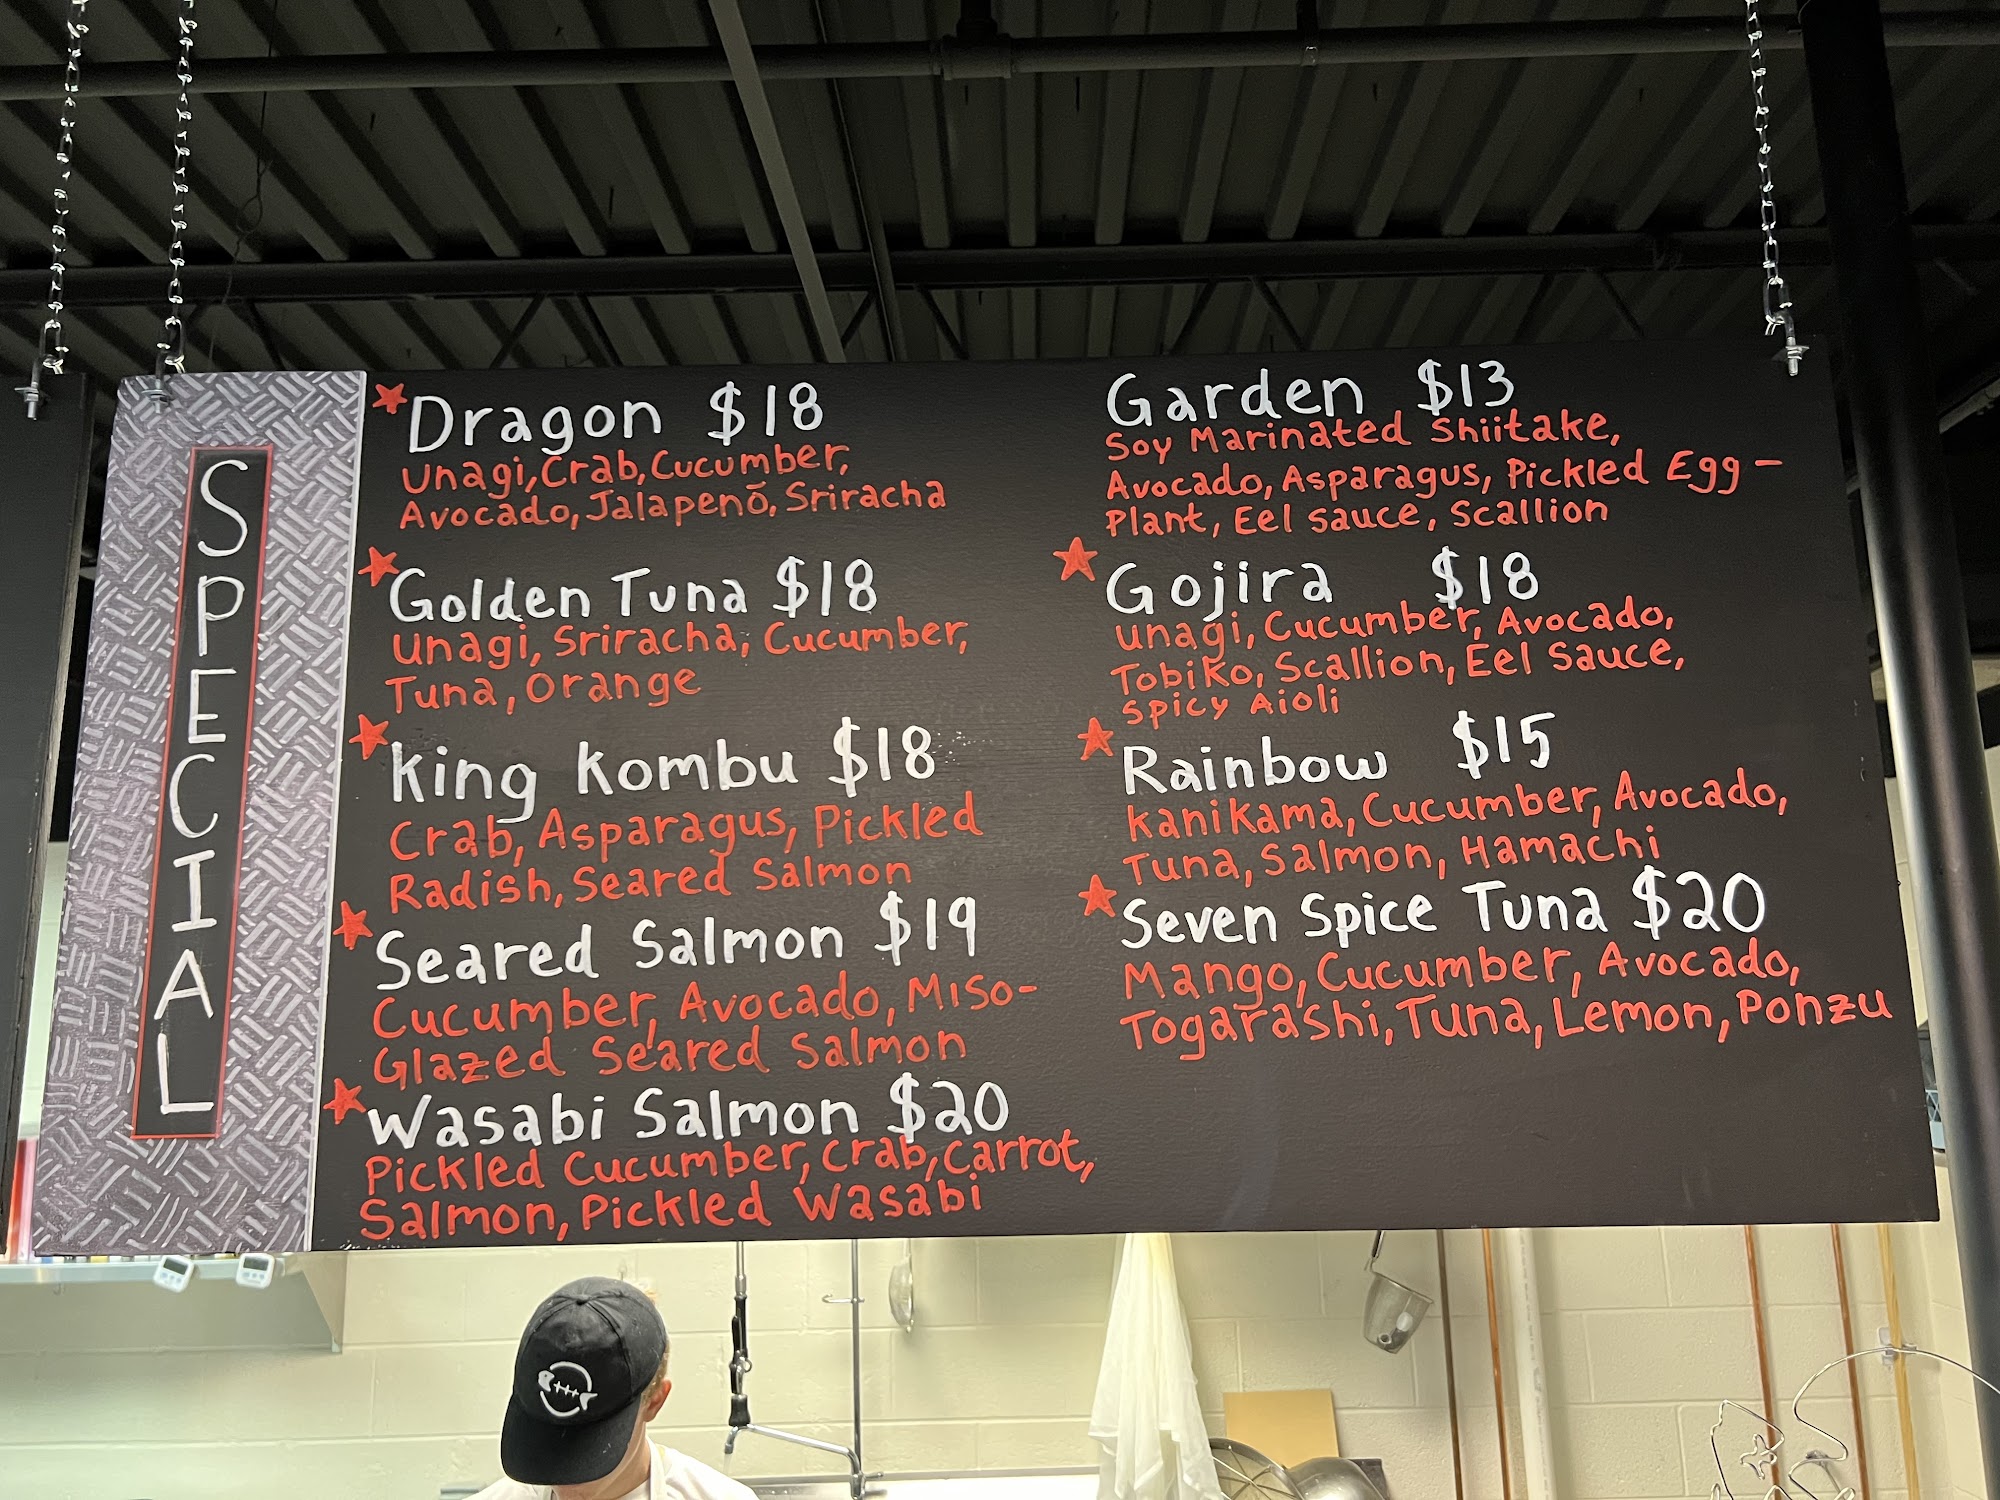 SPECIAL
Dragon $18
Unagi, Crab, Cucumber,
Avocado, Jalapenō, Sriracha
Golden Tuna $18
Unagi, Sriracha, Cucumber,
Tuna, Orange
King Kombu $18
Crab, Asparagus, Pickled
Radish, Seared Salmon
Seared Salmon $19
Cucumber, Avocado, Miso-
Glazed Seared Salmon
Wasabi Salmon $20
Pickled Cucumber, Crab, Carrot,
Salmon, Pickled Wasabi
Garden $13
Soy Marinated Shiitake,
Avocado, Asparagus, Pickled Egg-
Plant, Eel Sauce, Scallion
Gojira $18
Unagi, Cucumber, Avocado,
Tobiko, Scallion, Eel Sauce,
Spicy Aioli
Rainbow $15
Kanikama, Cucumber, Avocado,
Tuna, Salmon, Hamachi
Seven Spice Tuna $20
Mango, Cucumber, Avocado,
Togarashi, Tuna, Lemon, Ponzu